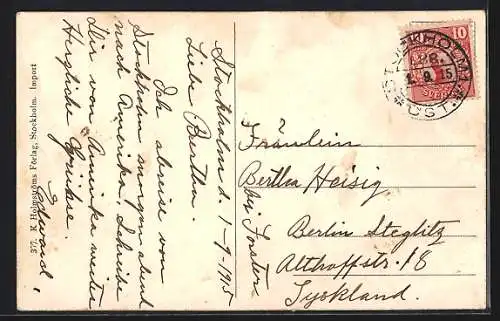 Stockholm d. 1-9-1915
Liebe Bertha.
Ich abreise von
Stockholm morgen abend
nach Amerika. Schreibe
Dir von Amerika weiter
Herzliche Grüsse
Edward.
377. K Holmströms Förlag, Stockholm. Import
10
STOCKHOLM 1
1. 9. 15
ÖST.
Fräulein
Bertha Heisig
bij Forster
Berlin Steglitz
Althoffstr. 18
Tyskland.